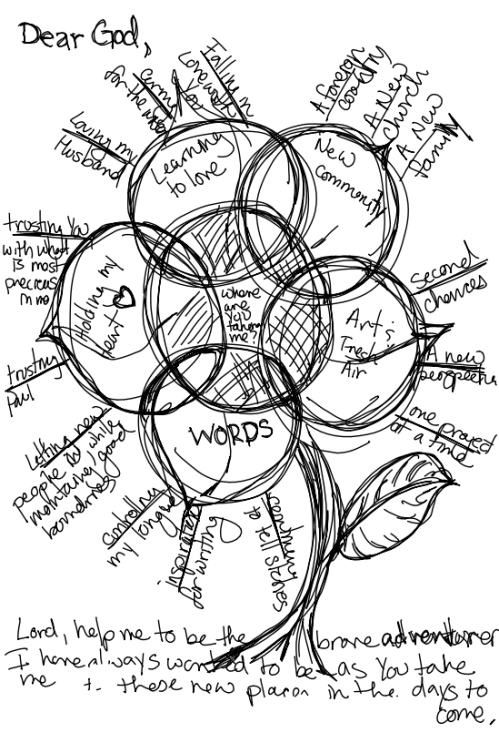 Dear God,
Falling in
Love with
God
caring
for the
Loving my
Husband
Learning
to love
A foreign
country
A New
church
A New
family
New
community
second
chances
Art &
Trees
Air
A new
one project
at a time
where
are
you
taking
me?
trusting You
with what
is most
precious
trusting
Paul
Holding my
Heart
Letting new
people in while
maintaining good
boundaries
controlling
my tongue
WORDS
inspiration
for writing
continuing
to tell stories
Lord, help me to be the brave adventurer
I have always wanted to be as You take
me to these new places in the days to
come.